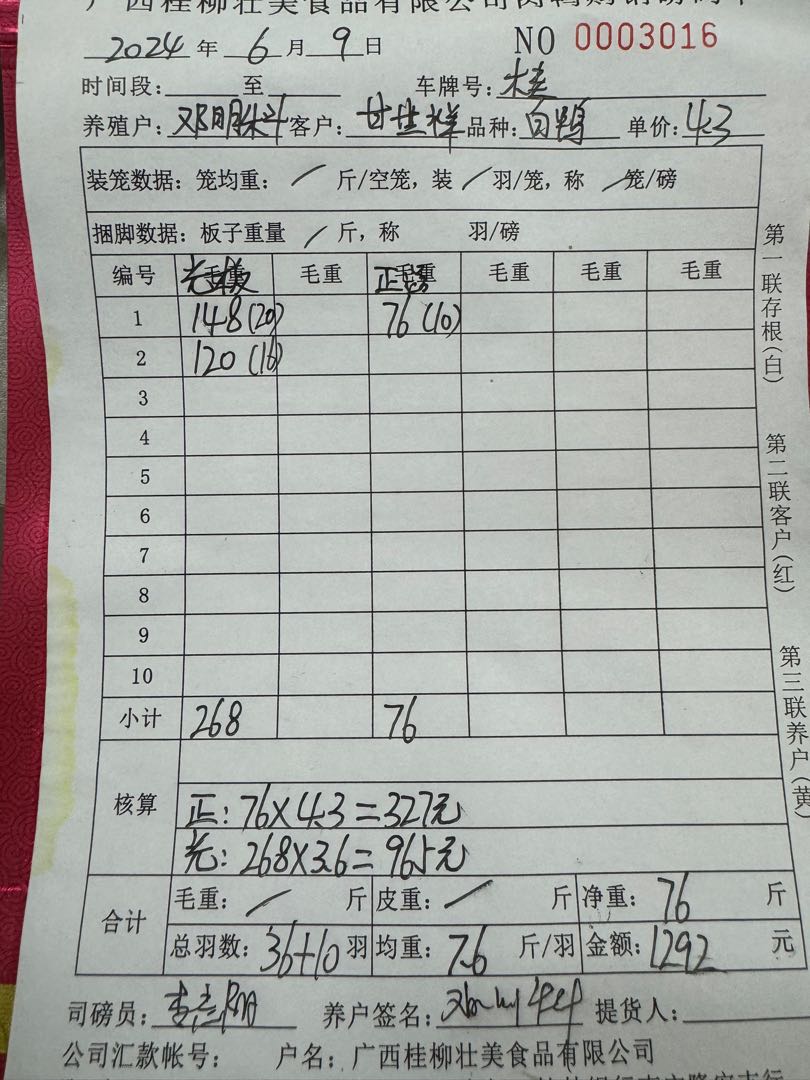 广西桂柳壮美食品有限公司肉鸭购销磅码单
2024 年 6 月 9 日 NO 0003016
时间段: 至 车牌号: 楼
养殖户: 邓明 客户: 甘 祥 品种: 白鸭 单价: 4.3
装笼数据: 笼均重: / 斤/空笼, 装 / 羽/笼, 称 / 笼/磅
捆脚数据: 板子重量 / 斤, 称 羽/磅
编号 毛重 毛重 正 毛重 毛重 毛重 毛重
1 148(20) 76(10)
2 120(16)
3
4
5
6
7
8
9
10
小计 268 76
核算
正: 76×4.3=327元
光: 268×3.6=965元
合计
毛重: / 斤 皮重: / 斤 净重: 76 斤
总羽数: 36+10 羽 均重: 7.6 斤/羽 金额: 1292 元
司磅员: 李 养户签名: 提货人:
公司汇款帐号: 户名: 广西桂柳壮美食品有限公司
第一联存根(白)
第二联客户(红)
第三联养户(黄)